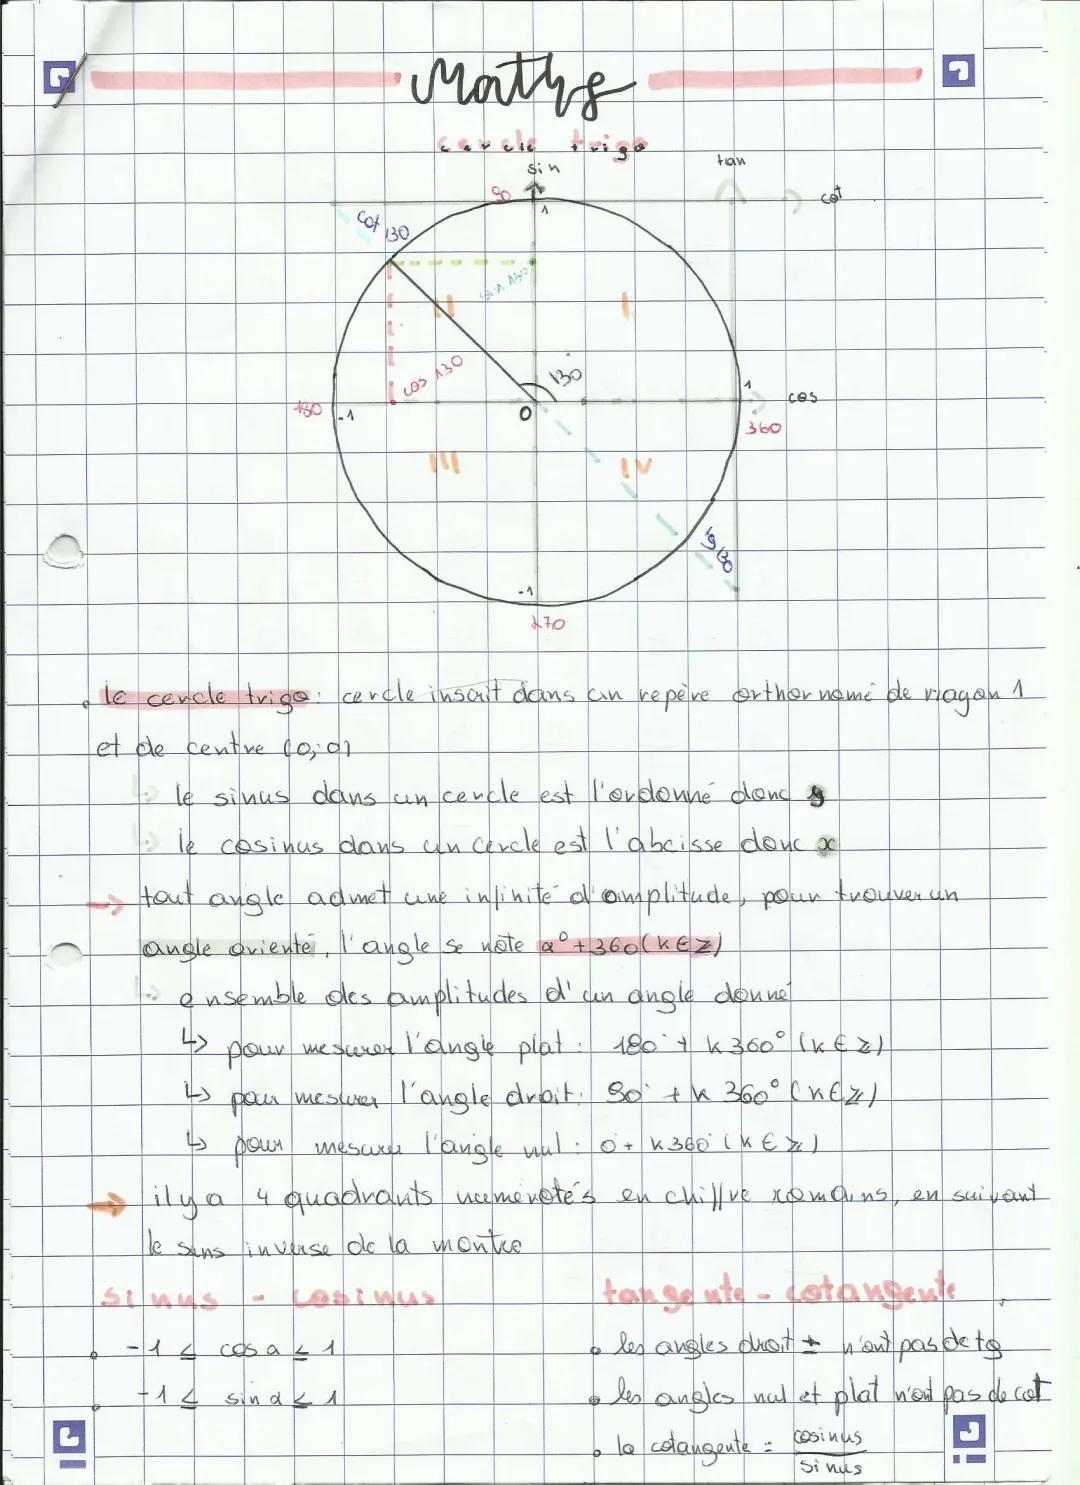 Maths
cercle trigo
sin
tan
90
cot
1
cot 130
sin 130
II
I
cos 130
130°
180
-1
O
1
cos
360
III
IV
tg 130
-1
270
le cercle trigo : cercle inscrit dans un repère orthornomé de rayon 1
et de centre (0;0)
↳ le sinus dans un cercle est l'ordonné donc y
↳ le cosinus dans un cercle est l'abcisse donc x
→ tout angle admet une infinité d'amplitude, pour trouver un
angle orienté, l'angle se note α° + 360 (k ∈ Z)
↳ ensemble des amplitudes d'un angle donné
↳ pour mesurer l'angle plat : 180° + k 360° (k ∈ Z)
↳ pour mesurer l'angle droit : 90° + k 360° (k ∈ Z)
↳ pour mesurer l'angle nul : 0 + k 360° (k ∈ Z)
→ il y a 4 quadrants numérotés en chiffre romains, en suivant
le sens inverse de la montre
sinus - cosinus
tangente - cotangente
-1 ≤ cos α ≤ 1
• les angles droit ± n'ont pas de tg
-1 ≤ sin α ≤ 1
• les angles nul et plat n'ont pas de cot
• la cotangente = cosinus
sinus